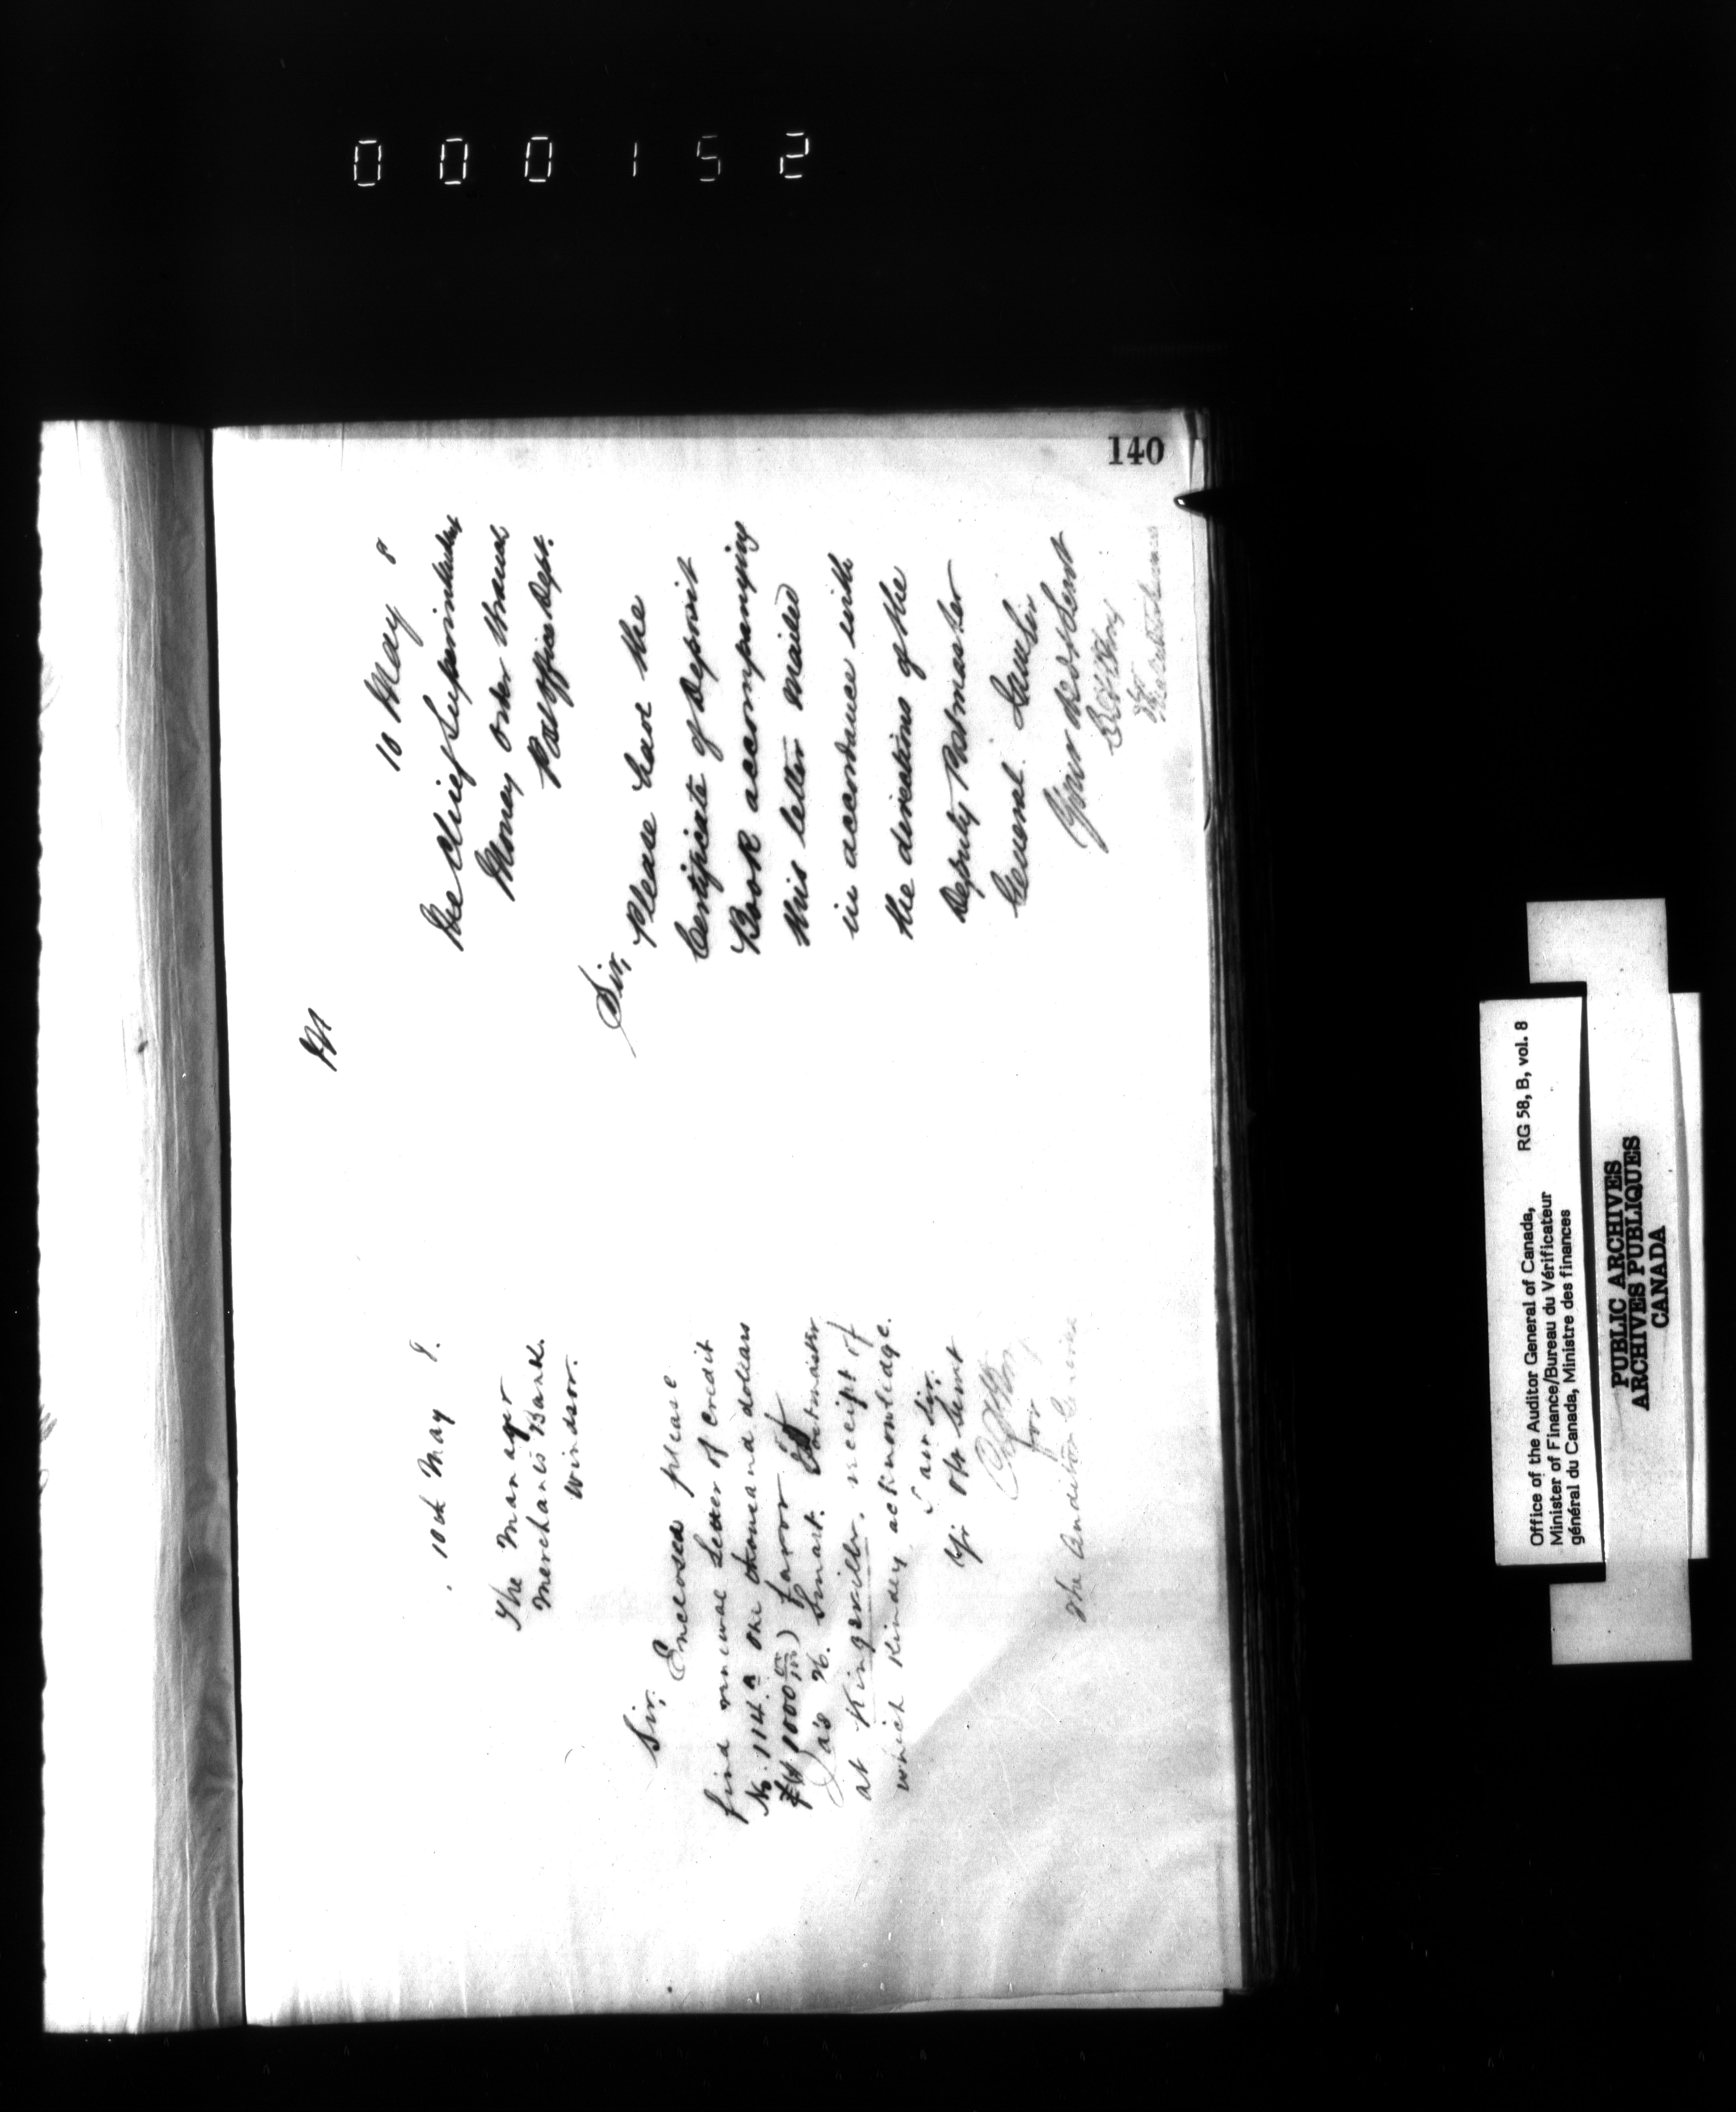 000152
140
10th May 8.
The Manager
Merchants Bank.
Windsor.
Sir,
Enclosed please
find renewal Letter of Credit
No. 114. a One thousand dollars
($1000 00/100) favor of
Jas H. Smart. Postmaster
at Kingsville. receipt of
which kindly acknowledge.
I am Sir.
Yr Obt Servt
for
The Auditor General
M
10 May 8
The Chief Superintendent
Money Order Branch
Post Office Dept.
Sir,
Please have the
Certificate of Deposit
Book accompanying
this letter mailed
in accordance with
the directions of the
Deputy Postmaster
General.
Your Obdt Servt
for
Office of the Auditor General of Canada, RG 58, B, vol. 8
Minister of Finance/Bureau du Vérificateur
général du Canada, Ministre des finances
PUBLIC ARCHIVES
ARCHIVES PUBLIQUES
CANADA